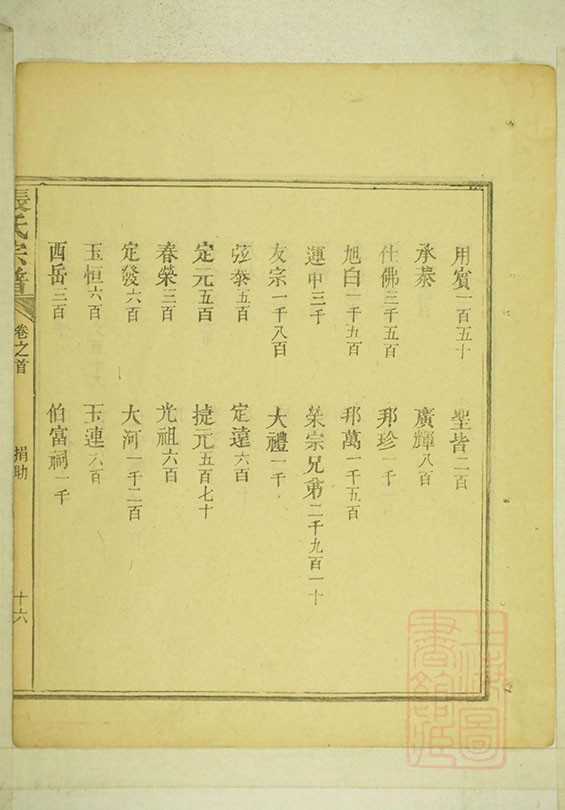 用賓一百五十　聖皆二百
承蓁　廣輝八百
仕佛三千五百　邦珍一千
旭白一千五百　邦萬一千五百
運甲三千　榮宗兄弟二千九百一十
友宗一千八百　大禮一千
弦泰五百　定達六百
定元五百　捷元五百七十
春榮三百　光祖六百
定發六百　大河一千二百
玉恒六百　玉連六百
西岳三百　伯富祠一千
張氏宗譜　卷之首　捐助　十六
上海圖書館藏